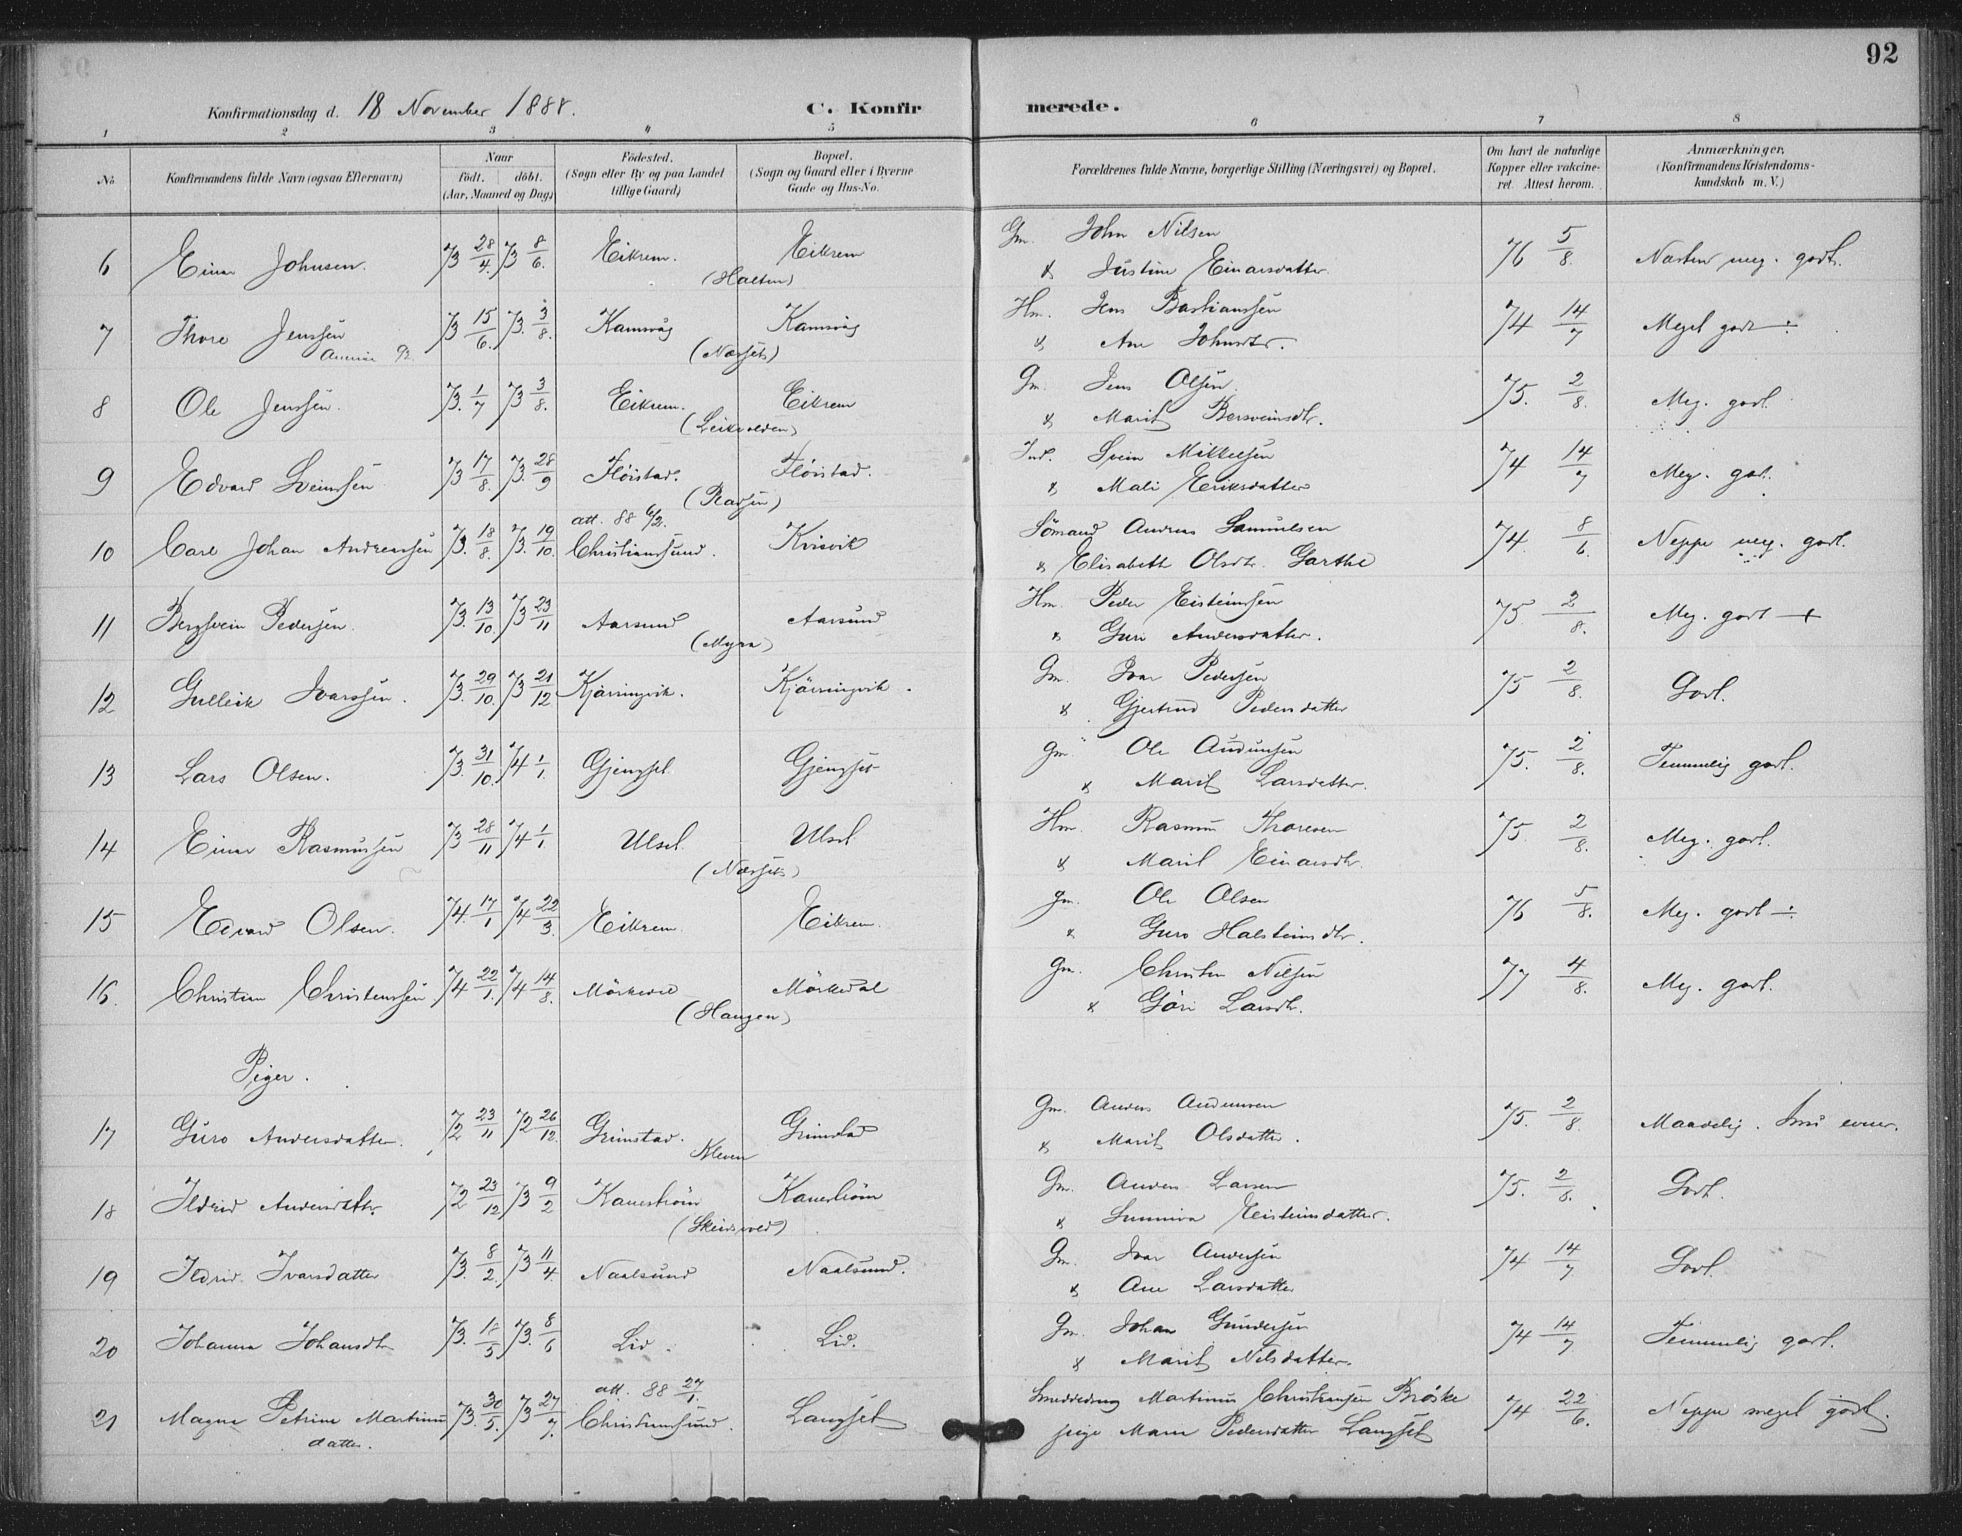 92
Konfirmationsdag d. 18 November 1888. C. Konfirmerede.
1 2 3 4 5 6 7 8
No
Konfirmandens fulde Navn (ogsaa Efternavn)
Naar
født. døbt.
(Aar, Maaned og Dag)
Fødested.
(Sogn eller By og paa Landet
tillige Gaard)
Bopæl.
(Sogn og Gaard eller i Byerne
Gade og Hus-No.
Forældrenes fulde Navne, borgerlige Stilling (Næringsvei) og Bopæl.
Om havt de naturlige
Kopper eller vakcine-
ret. Attest herom.
Anmærkninger,
(Konfirmandens Kristendoms-
kundskab m. V.)
6 Einar Johnsen. 73 28/4. 73 8/6. Eikrem. Eikrem Gm. John Nilsen 76 5/8. Næsten meg. godt.
(Halten) & Justine Einarsdatter.
7 Thore Jenssen 73 15/6. 73. 3/8. Kamsvåg Kamsvåg Hm. Jens Bastianssen 74 14/7 Meget godt ÷
(Næsset) & Ane Johnsdtr.
8 Ole Jenssen. 73. 1/7 73 3/8. Eikrem. Eikrem Gm. Jens Olsen 75. 2/8. Meg. godt.
(Leikvolden) & Marit Bersveinsdtr.
9 Edvard Sveinssen 73 17/8. 73. 28/9 Fløistad. Fløistad. Ind. Svein Mikkelsen 74 14/7 Meg. godt.
& Mali Eriksdatter
att. 88 6/2.
10 Carl Johan Andreassen 73. 18/8. 73. 19/10. Christianssund. Kvisvik Sømand Andreas Samuelsen 74. 8/6. Neppe meg. godt.
& Elisabeth Olsdtr. Garthe
11 Bergsvein Pedersen. 73. 13/10. 73 23/11 Aarsund Aarsund Hm. Peder Eisteinsen 75 2/8. Meg. godt +
(Myra) & Guri Andersdatter.
12 Gulleik Ivarssen. 73. 29/10. 73 21/12 Kjørringvik. Kjørringvik. Gm. Ivar Pedersen 75 2/8. Godt.
& Gjertrud Pedersdatter
13 Lars Olsen. 73. 31/10. 74 1/1. Gjengset Gjengset Gm. Ole Audunsen 75. 2/8. Temmelig godt.
& Marit Larsdatter.
14 Einar Rasmussen 73 28/11 74 1/1. Ulset Ulset Hm. Rasmus Thoresen 75 2/8. Meg. godt.
(Næsset) & Marit Einarsdtr.
15 Edvard Olsen. 74. 17/1 74 22/3. Eikrem. Eikrem. Gm. Ole Olsen 76 5/8. Meg. godt ÷
& Guro Halsteinsdtr.
16. Christian Christenssen 74 22/1. 74 14/8. Mørkedal Mørkedal Gm. Christen Nilsen 77 4/8. Meg. godt.
(Haugen) & Gøri Larsdtr.
Piger.
17 Guro Andersdatter. 72 23/11 72 26/12. Grimstad. Grimstad Gm. Anders Audunsen 75. 2/8. Maadelig. Små evner.
Kleven & Marit Olsdatter.
18 Ildrid Andersdatter. 72 23/12 73 9/2 Kanestrøm Kanestrøm Gm. Anders Larsen 75. 2/8. Godt.
& Sunniva Eisteinsdatter.
19 Ildrid Ivarsdatter 73. 8/2. 73 11/4. Naalsund Naalsund. Gm. Ivar Andersen 74 14/7 Godt.
& Ane Larsdatter
20 Johanna Johansdtr 73. 18/5 73. 8/6 Lid. Lid. Gm. Johan Gundersen 74 14/7 Temmelig godt.
& Marit Nilsdatter.
att. 88 27/1.
21 Magna Petrine Martinus 73. 30/5. 73 27/7. Christianssund. Langset Smeddreng Martinus Christiansen Brøske 74 22/6. Neppe meget godt.
datter. pige Marie Pedersdatter Langset